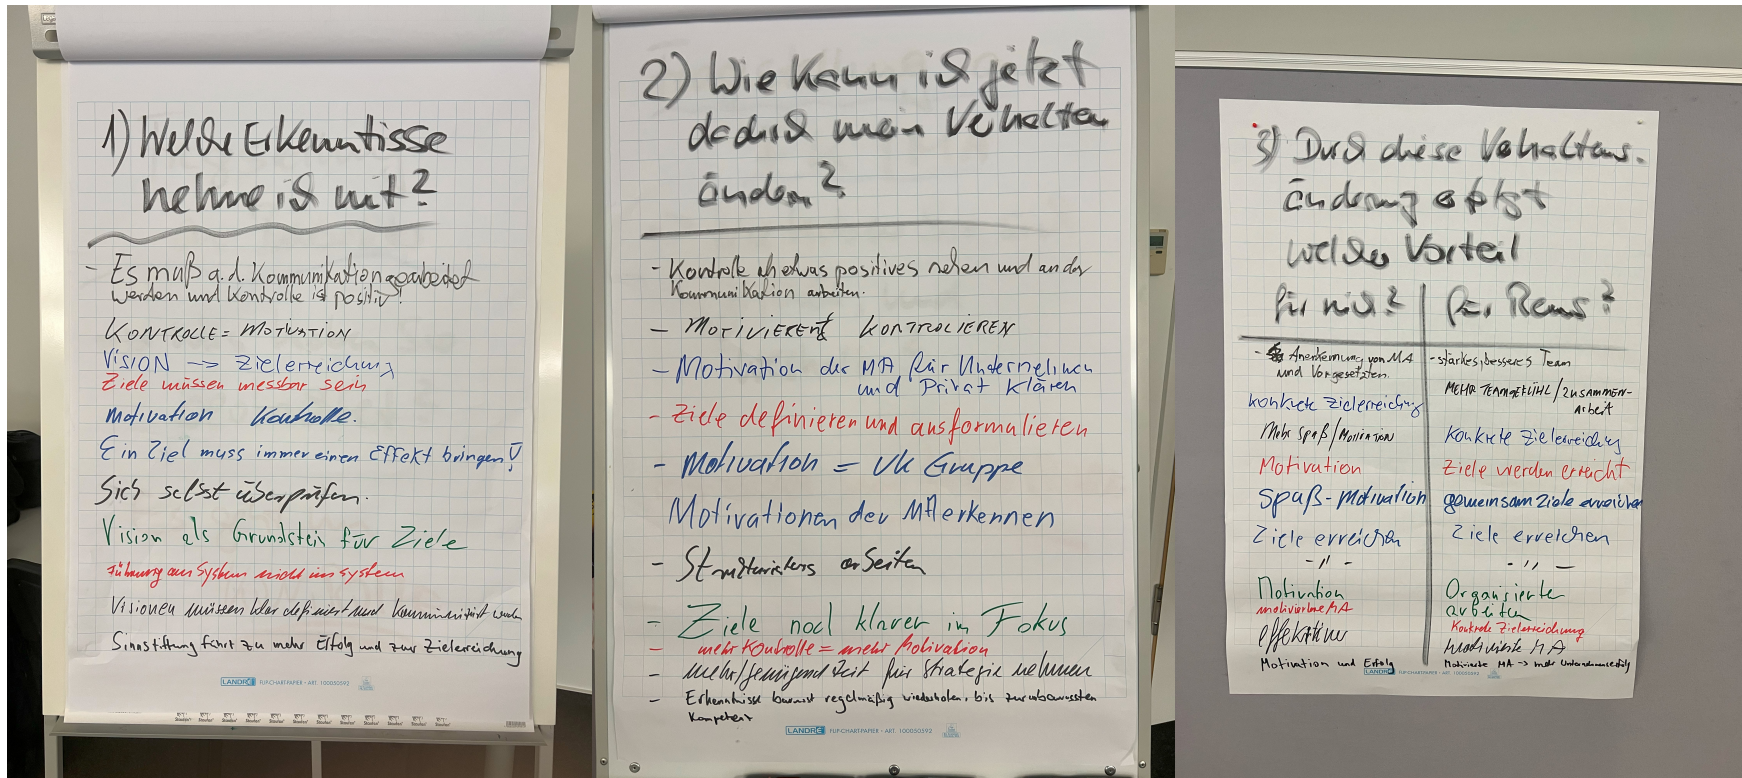 1) Welche Erkenntisse
nehme ich mit?
- Es muß a. d. Kommunikation gearbeitet
werden und Kontrolle ist positiv!
KONTROLLE = MOTIVATION
Vision -> Zielerreichung
Ziele müssen messbar sein
Motivation Kontrolle.
Ein Ziel muss immer einen Effekt bringen!
Sich selbst überprüfen.
Vision als Grundstein für Ziele
Führung am System nicht im System
Visionen müssen klar definiert und kommuniziert werden
Sinnstiftung führt zu mehr Erfolg und zur Zielerreichung
LANDRÉ FLIP-CHART-PAPIER - ART. 100050592
2) Wie kann ich jetzt
dadurch mein Verhalten
ändern?
- Kontrolle als etwas positives sehen und an der
Kommunikation arbeiten.
- MOTIVIEREND KONTROLIEREN
- Motivation der MA, für Unternehmen
und Privat klären
- Ziele definieren und ausformulieren
- Motivation = VK Gruppe
Motivationen der MA erkennen
- Strukturiertes arbeiten
- Ziele noch klarer im Fokus
- mehr Kontrolle = mehr Motivation
- mehr/genügend Zeit für Strategie nehmen
- Erkenntnisse bewusst regelmäßig wiederholen, bis zur unbewussten
Kompetenz
LANDRÉ FLIP-CHART-PAPIER - ART. 100050592
3) Durch diese Verhaltens-
änderung erfolgt
welcher Vorteil
für mich? für Rems?
- Anerkennung von MA
und Vorgesetzten.
konkrete Zielerreichung
Mehr Spaß/Motivation
Motivation
Spaß - Motivation
Ziele erreichen
- " -
Motivation
motivierte MA
effektiver
Motivation und Erfolg
- starkes, besseres Team
MEHR TEAMGEFÜHL/ZUSAMMEN-
Arbeit
Konkrete Zielerreichung
Ziele werden erreicht
gemeinsam Ziele erreichen
Ziele erreichen
- " -
Organisierter
arbeiten
Konkrete Zielerreichung
motivierte MA
Motivierte MA -> mehr Unternehmenserfolg
LANDRÉ FLIP-CHART-PAPIER - ART. 100050592